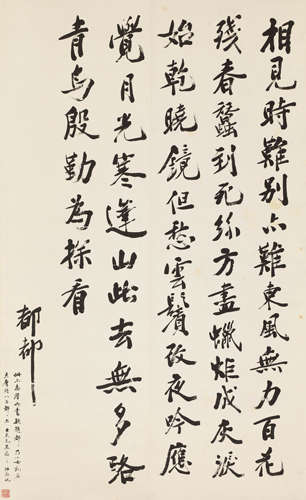 相見時難別亦難東風無力百花
殘春蠶到死絲方盡蠟炬成灰淚
始乾曉鏡但愁雲鬢改夜吟應
覺月光寒蓬山此去無多路
青鳥殷勤為探看
都都